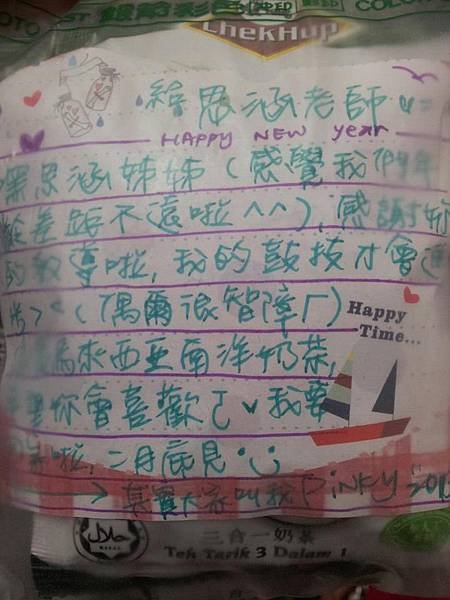 ChekHup
給思涵老師
HAPPY NEW year
嘿思涵姊姊(感覺我們年
齡差距不遠啦^^),感謝妳
的教導啦,我的鼓技才會進
步>"<(偶爾很智障ㄏ)
馬來西亞南洋奶茶,
你會喜歡ㄛ我要
啦,二月底見
Happy
Time...
其實大家叫我PINKY
三合一奶茶
Teh Tarik 3 Dalam 1